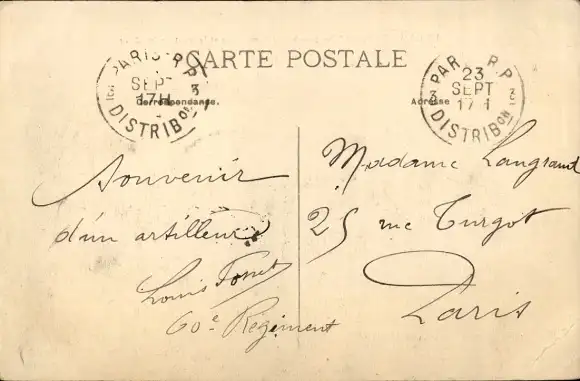 CARTE POSTALE
PARIS R.P
SEPT
17H
3
DISTRIBon
PARIS R.P
23
SEPT
17H
3
3
DISTRIBon
Correspondance.
Adresse
Souvenir
d'un artilleur
Louis
60e Regiment
Madame Langrand
25 rue Turgot
Paris